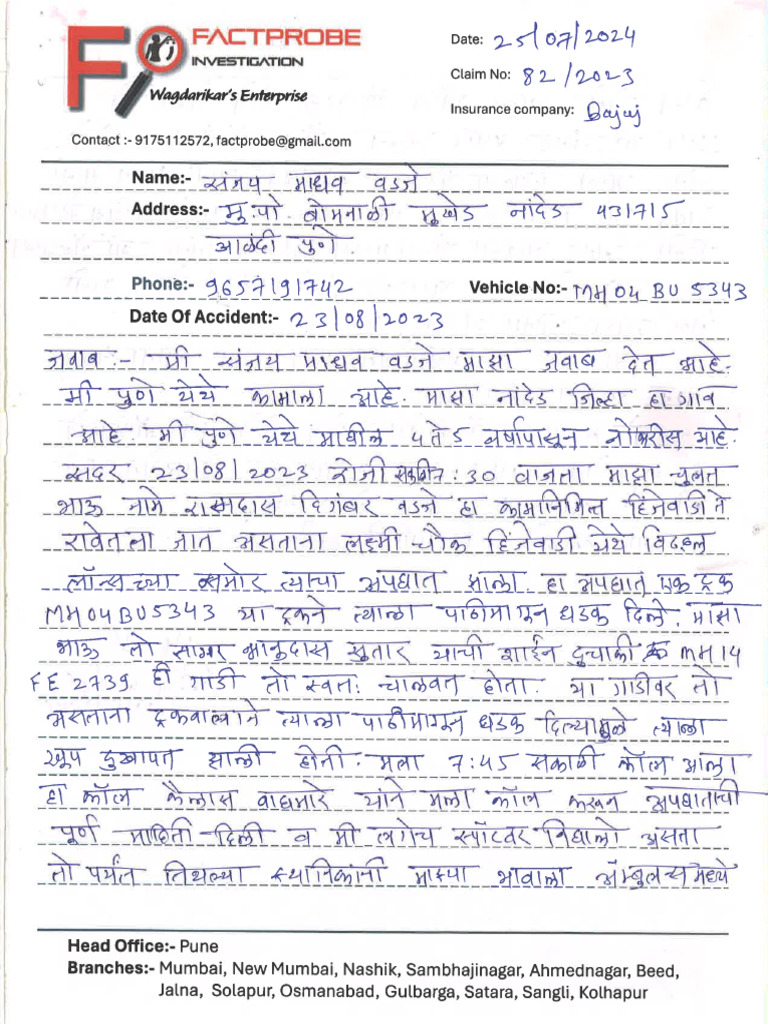 FACTPROBE
INVESTIGATION
Wagdarikar's Enterprise
Contact :- 9175112572, factprobe@gmail.com
Date: 25/07/2024
Claim No: 82/2023
Insurance company: Bajaj
Name:- संजय माधव वडजे
Address:- मु.पो बोमनाळी मुखेड नांदेड 431715
आळंदी पुणे
Phone:- 9657191742 Vehicle No:- MH04 BU 5343
Date Of Accident:- 23/08/2023
जवाब :- मी संजय माधव वडजे माझा जवाब देत आहे.
मी पुणे येथे कामाला आहे. माझा नांदेड जिल्हा हा गाव
आहे. मी पुणे येथे मागील 4 ते 5 वर्षापासून नोकरीस आहे.
सदर 23/08/2023 रोजी सकाळी 7:30 वाजता माझा चुलत
भाऊ नामे रामदास दिगंबर वडजे हा कामानिमित्त हिंजेवाडी ते
रावेतला जात असताना लक्ष्मी चौक हिंजेवाडी येथे विठ्ठल
लॉन्सच्या समोर त्याचा अपघात झाला. हा अपघात एक ट्रक
MH04BU5343 या ट्रकने त्याला पाठीमागून धडक दिली. माझा
भाऊ तो सागर भानुदास सुतार याची शाईन दुचाकी क्र MH14
FE 2739 ही गाडी तो स्वतः चालवत होता. या गाडीवर तो
असताना ट्रकवाल्याने त्याला पाठीमागून धडक दिल्यामुळे त्याला
खूप दुखापत झाली होती. मला 7:45 सकाळी कॉल आला
हा कॉल कैलास वाघमारे यांने मला कॉल करून अपघाताची
पूर्ण माहिती दिली व मी लगेच स्पॉटवर निघालो असता
तो पर्यंत तिथल्या स्थानिकांनी माझ्या भावाला ॲम्बुलन्स मध्ये
Head Office:- Pune
Branches:- Mumbai, New Mumbai, Nashik, Sambhajinagar, Ahmednagar, Beed,
Jalna, Solapur, Osmanabad, Gulbarga, Satara, Sangli, Kolhapur